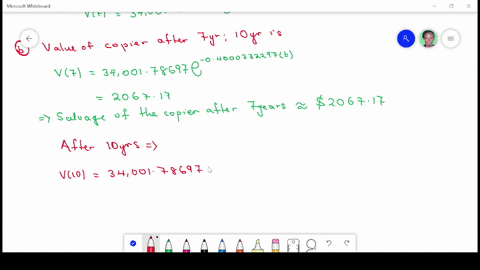 Microsoft Whiteboard
V(t) = 34,001.
b Value of copier after 7yr; 10yr is
V(7) = 34,001.78697e^-0.4000332297(6)
= 2067.17
=> Salvage of the copier after 7years ≈ $2067.17
After 10yrs =>
V(10) = 34,001.78697